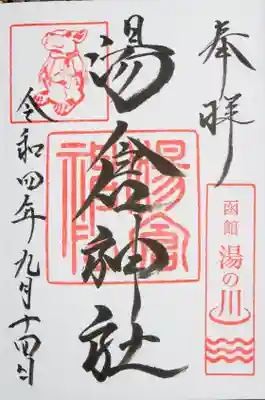 奉拝
函館
湯の川
湯倉神社
湯倉
神社
令和四年九月十四日